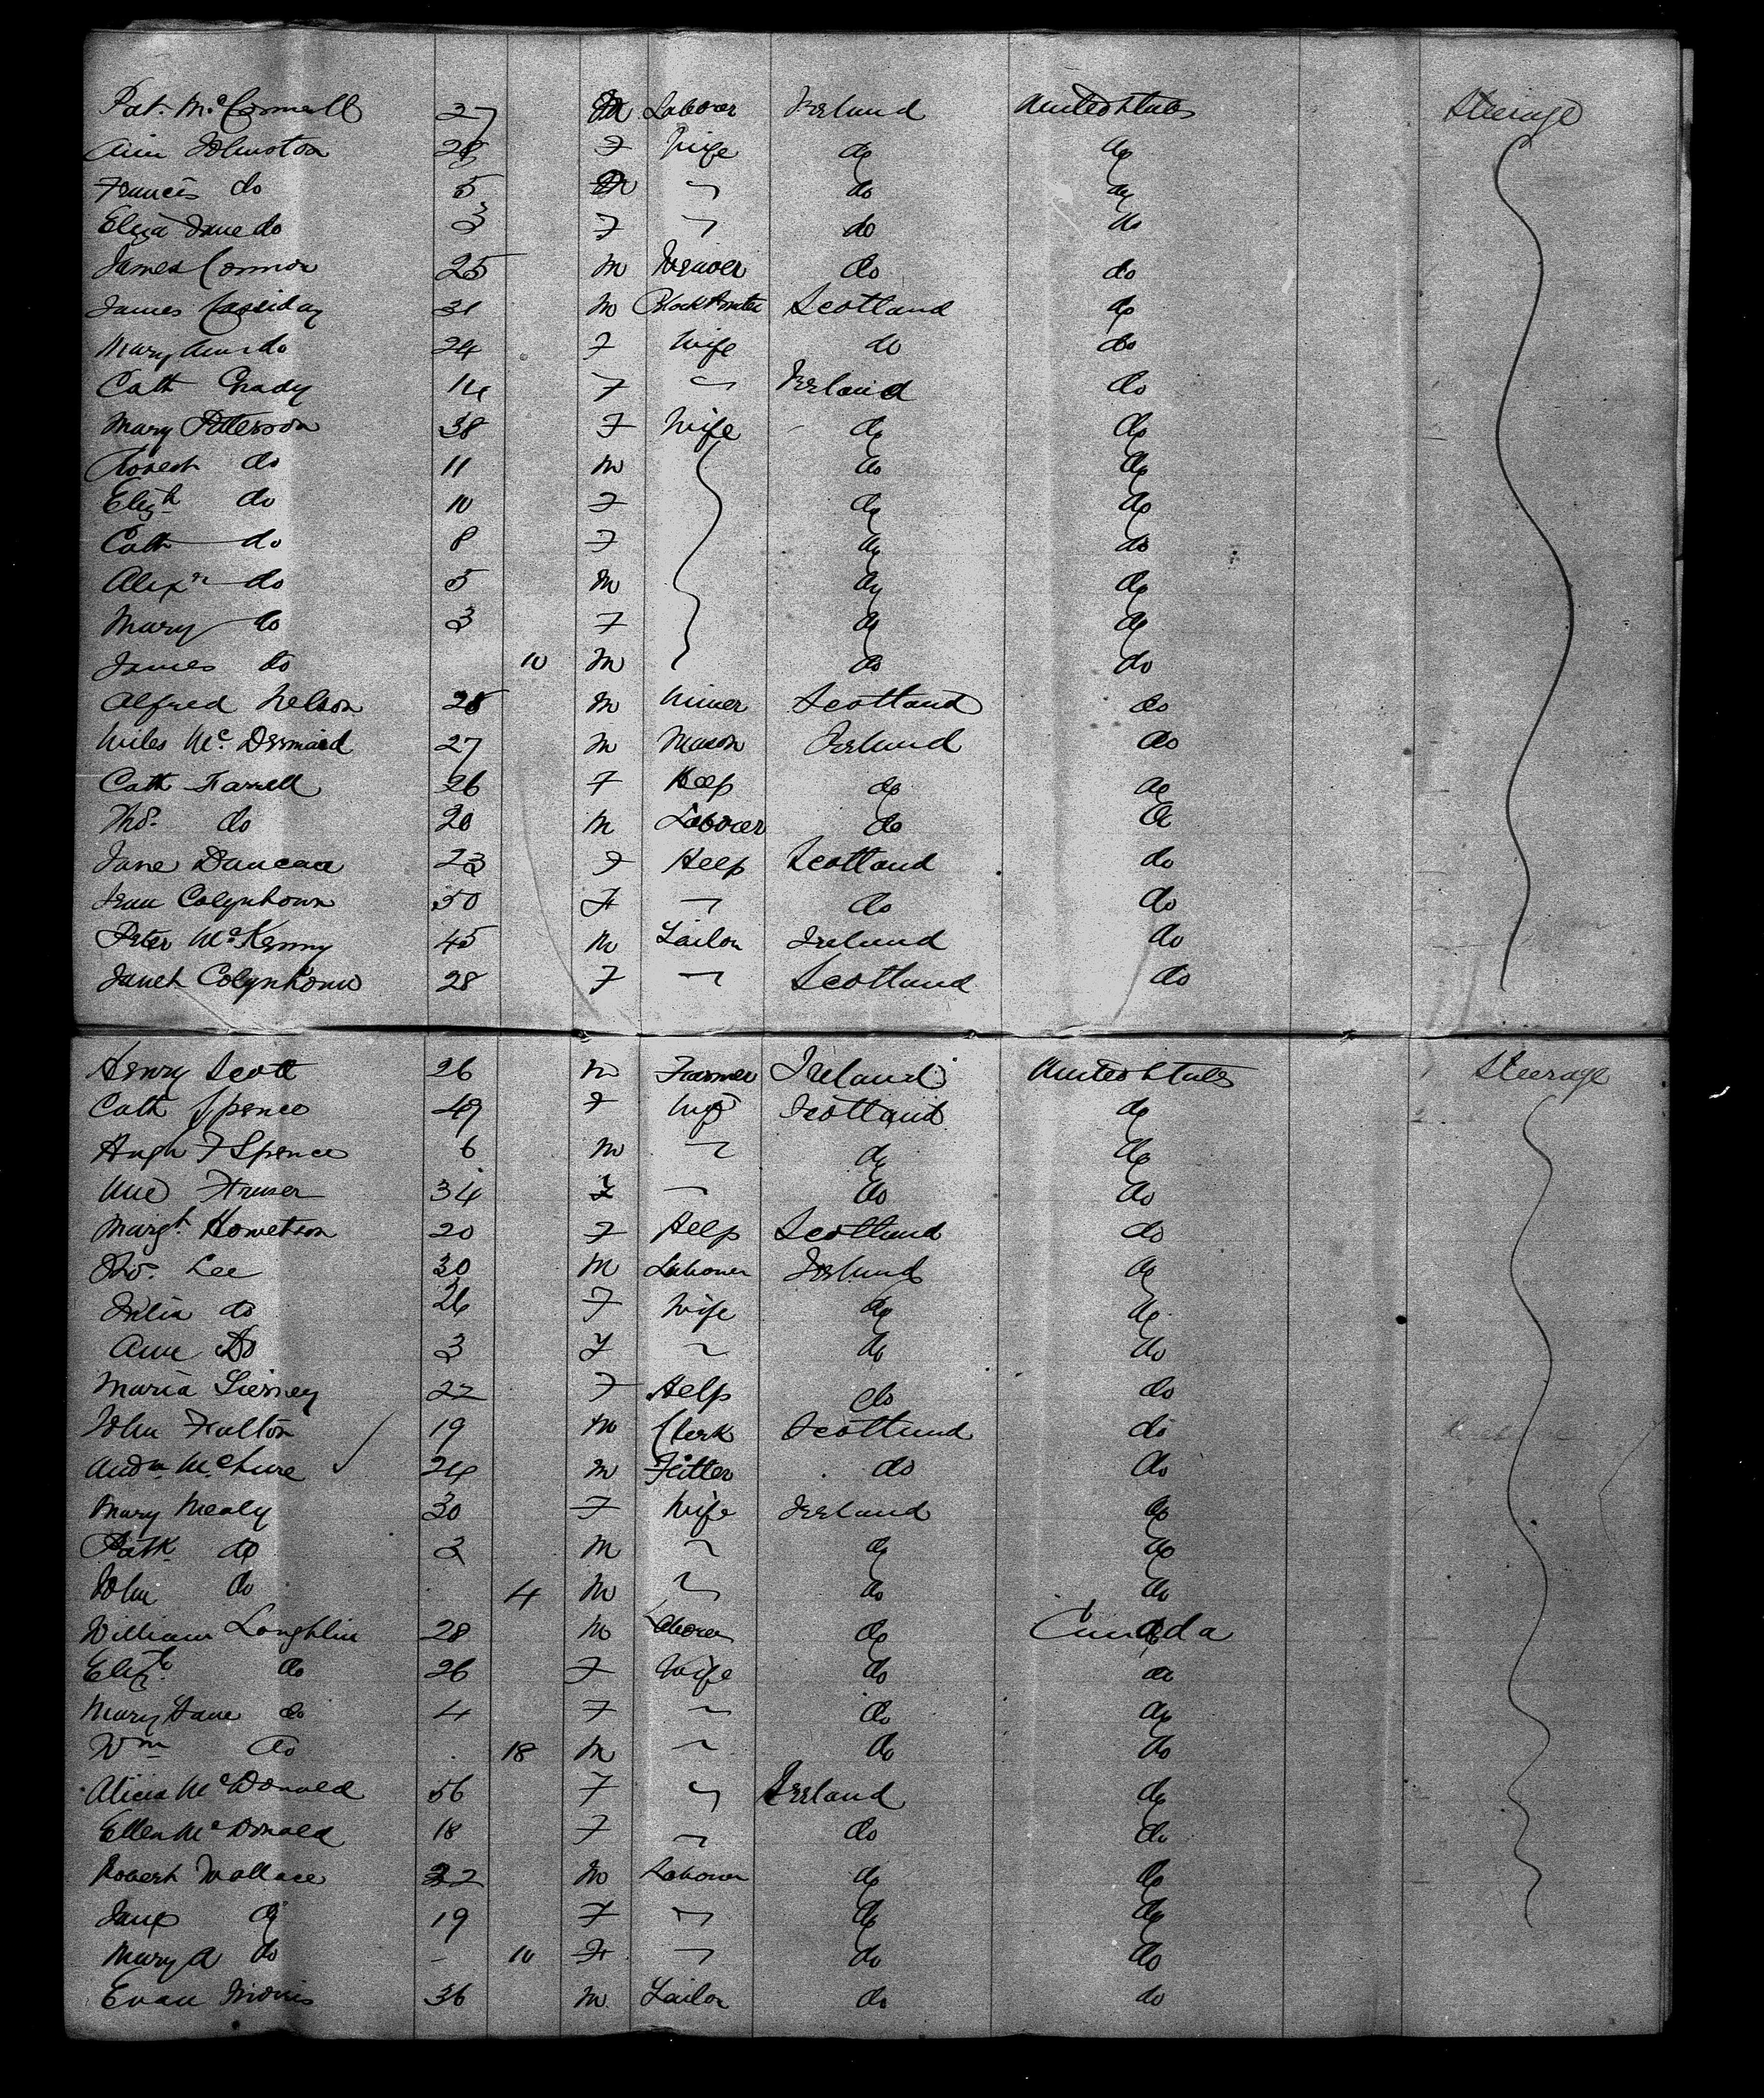 Pat. McConnell 27 M Laborer Ireland United States Steerage
Ann Johnston 28 F Wife do do
Francis do 5 M " do do
Eliza Jane do 3 F " do do
James Connor 25 M Weaver do do
James Cassiday 31 M Blacksmith Scotland do
Mary Ann do 24 F Wife do do
Cath Grady 14 F " Ireland do
Mary Patterson 38 F Wife do do
Robert do 11 M do do
Elizh do 10 F do do
Cath do 8 F do do
Alexr do 5 M do do
Mary do 3 F do do
James do 10 M do do
Alfred Nelson 28 M Miner Scotland do
Miles McDermaid 27 M Mason Ireland do
Cath Farrell 26 F Help do do
Thos. do 20 M Laborer do do
Jane Duncan 23 F Help Scotland do
Jean Colquhoun 50 F " do do
Peter McKenny 45 M Tailor Ireland do
Janet Colquhoun 28 F " Scotland do
Henry Scott 26 M Farmer Ireland United States Steerage
Cath Spence 49 F Wife Scotland do
Hugh F Spence 6 M " do do
Fraser 34 F " do do
Margt. Howetson 20 F Help Scotland do
Thos. Lee 30 M Laborer Ireland do
Julia do 26 F Wife do do
Ann Do 3 F " do do
Maria Tierney 22 F Help do do
John Fulton 19 M Clerk Scotland do
Andw. McClure 24 M Fitter do do
Mary Mealy 30 F Wife Ireland do
Patk do 2 M " do do
John do 4 M " do do
William Loughlin 28 M Laborer do Canada
Elizth do 26 F Wife do do
Mary Jane do 4 F " do do
Wm do 18 M " do do
Alicia McDonald 56 F " Ireland do
Ellen McDonald 18 F " do do
Robert Wallace 22 M Laborer do do
Jane do 19 F " do do
Mary A do - 10 F " do do
Evan Morris 36 M Tailor do do